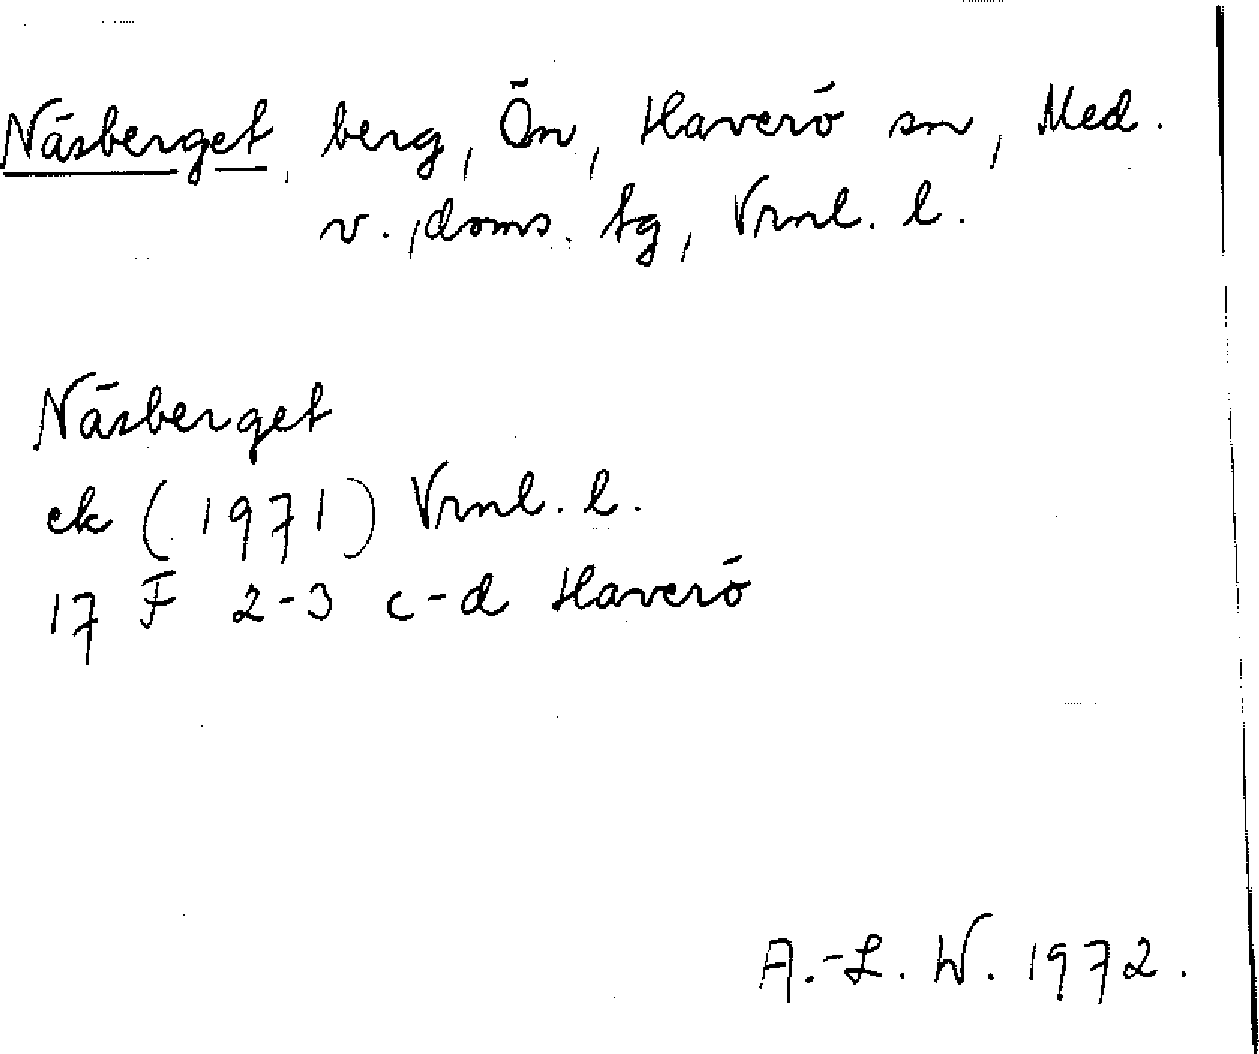 Näsberget, berg, Ön, Haverö sn, Med.
v. doms. tg, Vrnl. l.
Näsberget
ek (1971) Vrnl. l.
17 F 2-3 c-d Haverö
A.-L. W. 1972.